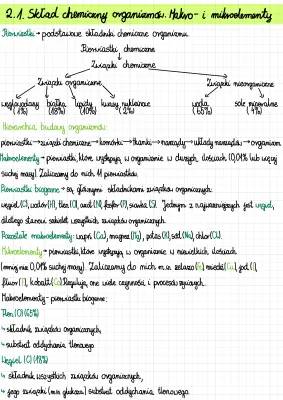 2.1. Skład chemiczny organizmów. Makro- i mikroelementy
Pierwiastki - podstawowe składniki chemiczne organizmu.
Pierwiastki chemiczne
Związki chemiczne
Związki organiczne Związki nieorganiczne
węglowodany białka lipidy kwasy nukleinowe woda sole mineralne
(1%) (18%) (10%) (2%) (65%) (4%)
Hierarchia budowy organizmu:
pierwiastki→związki chemiczne→komórki→tkanki→narządy→układy narządów→organizm
Makroelementy - pierwiastki, które występują w organizmie w dużych ilościach (0,01% lub więcej
suchej masy). Zaliczamy do nich 11 pierwiastków.
Pierwiastki biogenne - są głównymi składnikami związków organicznych:
węgiel (C), wodór (H), tlen (O), azot (N), fosfor (P), siarka (S). Jednym z najważniejszych jest węgiel,
dlatego stanowi szkielet wszystkich związków organicznych.
Pozostałe makroelementy: wapń (Ca), magnez (Mg), potas (K), sód (Na), chlor (CL).
Mikroelementy - pierwiastki, które występują w organizmie w niewielkich ilościach
(mniej niż 0,01% suchej masy). Zaliczamy do nich m.in. żelazo (Fe), miedź (Cu), jod (I),
fluor (F), kobalt (Co). Regulują one wiele czynności i procesów życiowych.
Makroelementy - pierwiastki biogenne:
Tlen (O) (65%)
↳ składnik związków organicznych,
↳ substrat oddychania tlenowego.
Węgiel (C) (18%)
↳ składnik wszystkich związków organicznych,
↳ jego związki (min. glukoza) substrat oddychania tlenowego.